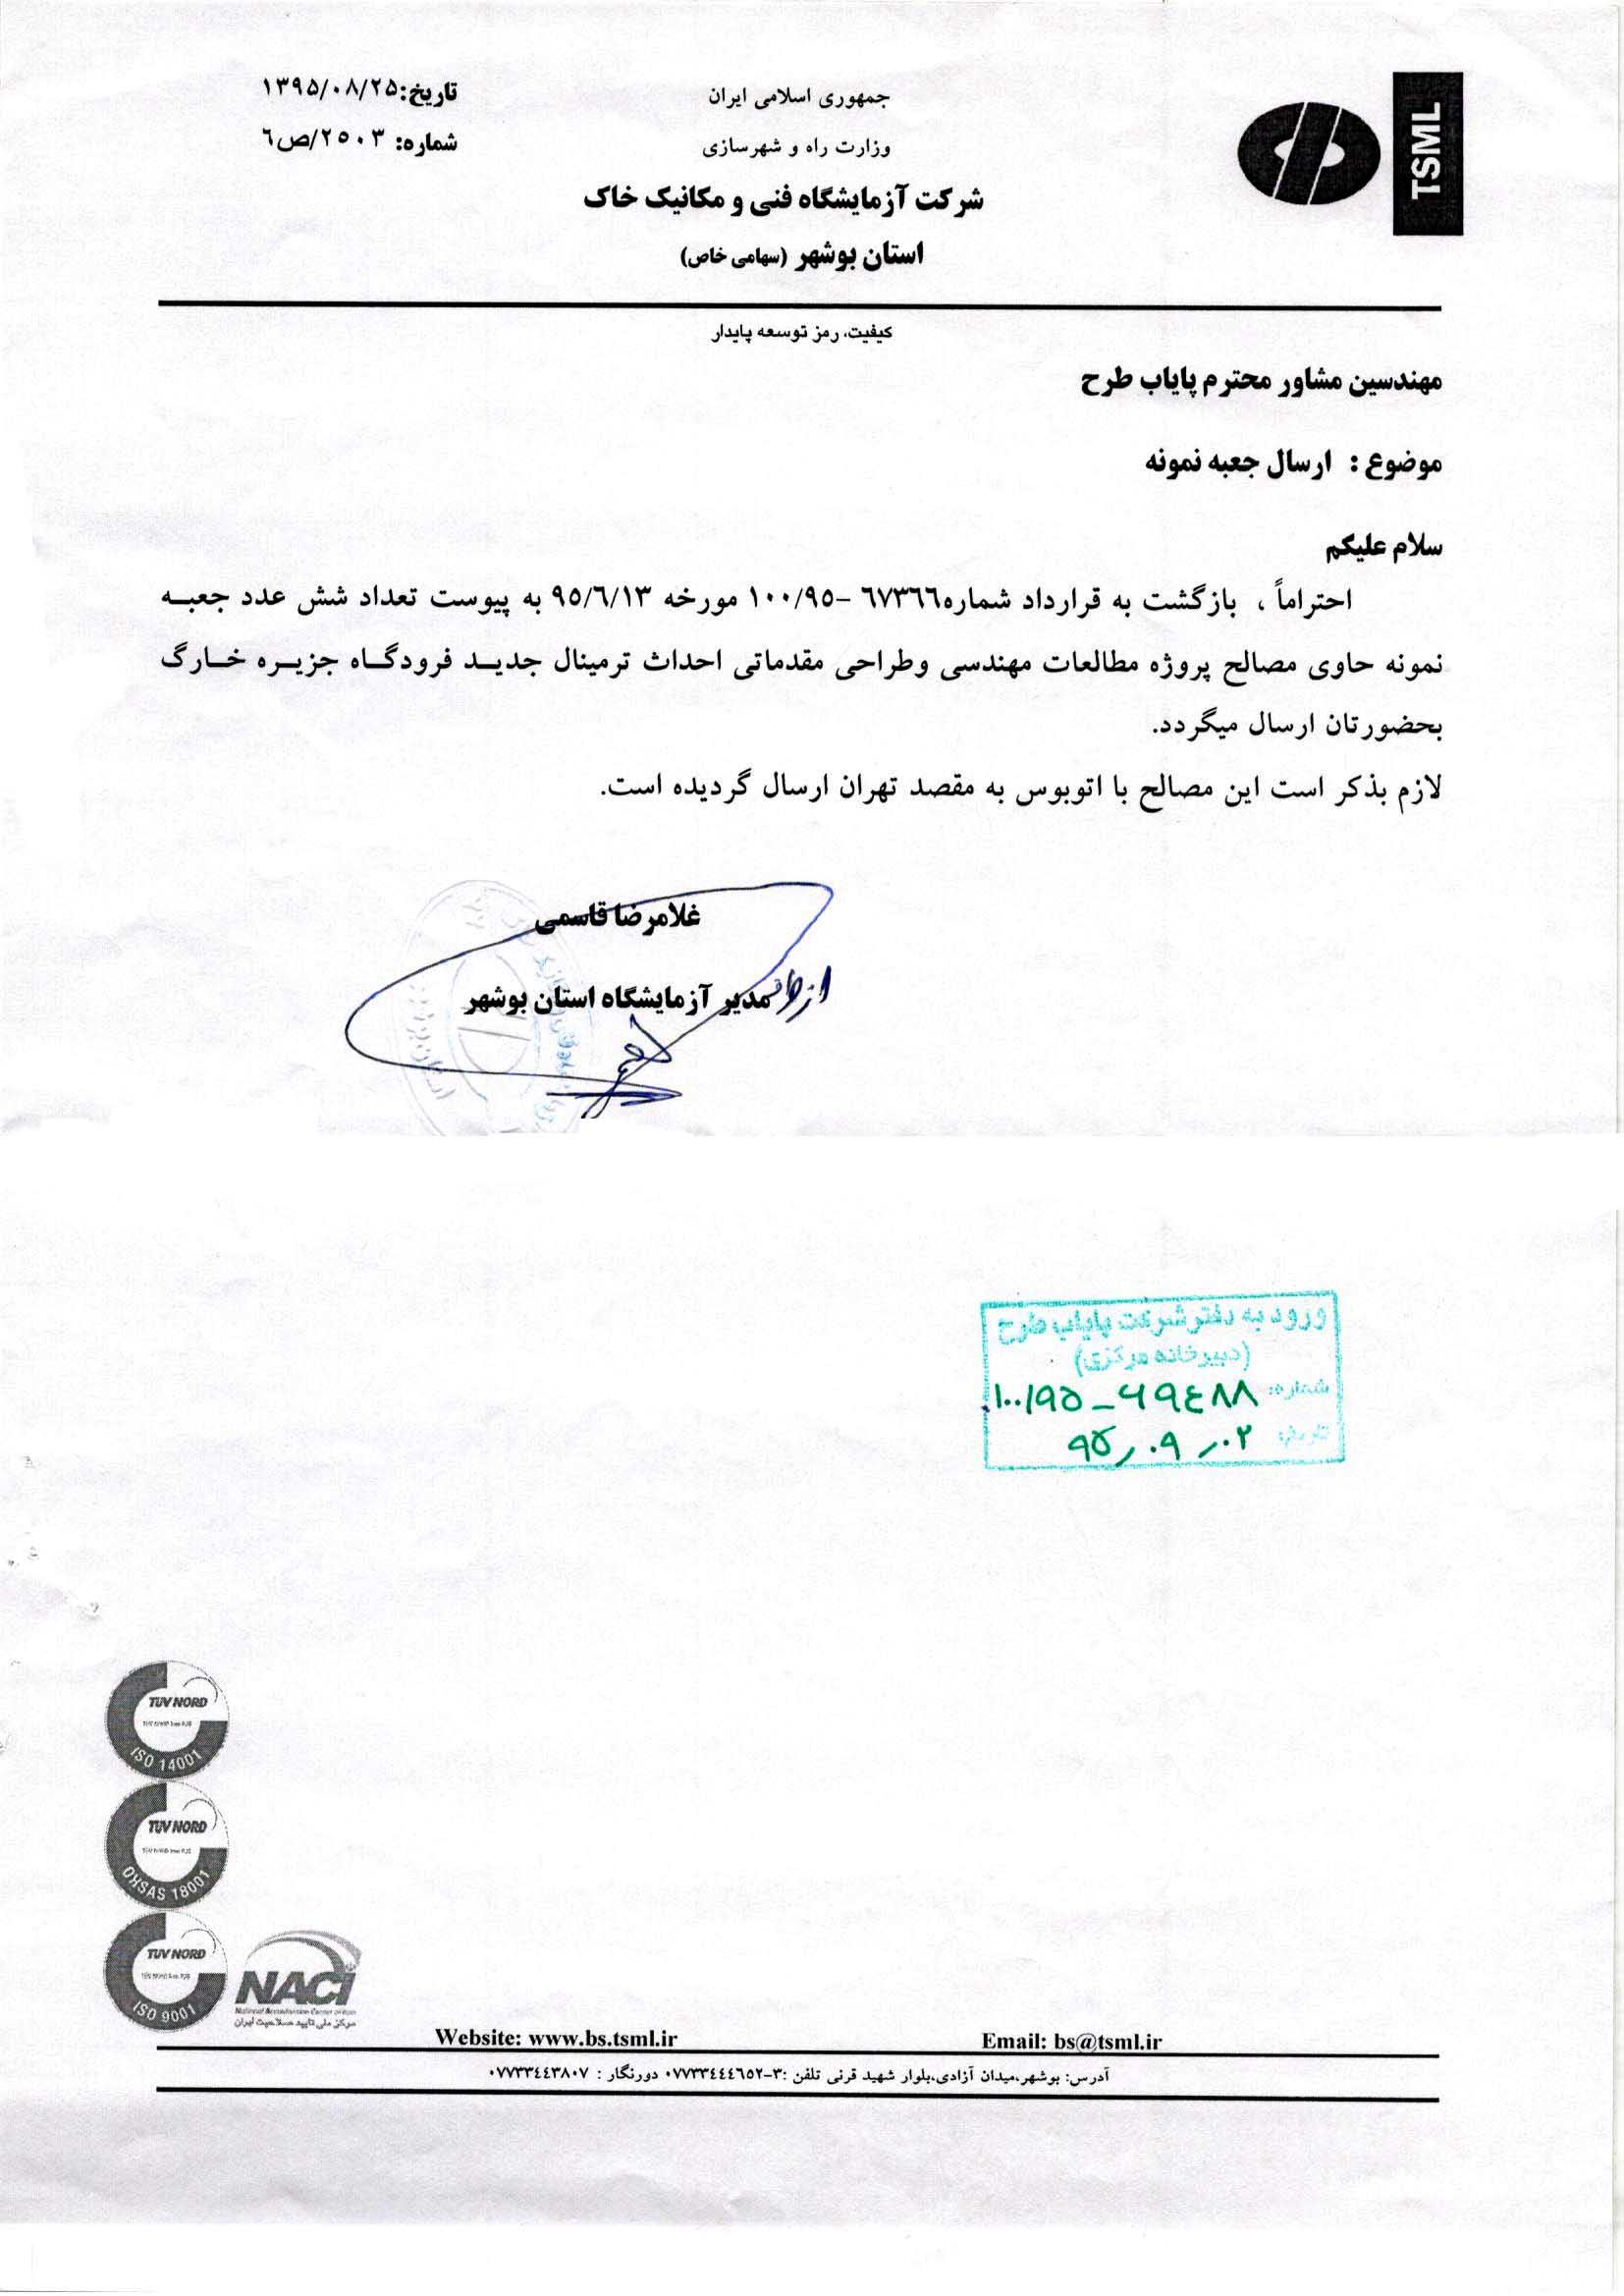 تاریخ:۱۳۹۵/۰۸/۲۵
شماره: ۲۵۰۳/ص۶
جمهوری اسلامی ایران
وزارت راه و شهرسازی
شرکت آزمایشگاه فنی و مکانیک خاک
استان بوشهر (سهامی خاص)
TSML
کیفیت، رمز توسعه پایدار
مهندسین مشاور محترم پایاب طرح
موضوع : ارسال جعبه نمونه
سلام علیکم
احتراماً ، بازگشت به قرارداد شماره۶۷۳۶۶ -۱۰۰/۹۵ مورخه ۹۵/۶/۱۳ به پیوست تعداد شش عدد جعبه
نمونه حاوی مصالح پروژه مطالعات مهندسی وطراحی مقدماتی احداث ترمینال جدید فرودگاه جزیره خارگ
بحضورتان ارسال میگردد.
لازم بذکر است این مصالح با اتوبوس به مقصد تهران ارسال گردیده است.
غلامرضا قاسمی
مدیر آزمایشگاه استان بوشهر
ورود به دفتر شرکت پایاب طرح
(دبیرخانه مرکزی)
شماره: ۱۰۰/۹۵-۶۹۴۸۸
تاریخ: ۹۵/۰۹/۰۲
TUV NORD
ISO 14001
TUV NORD
OHSAS 18001
TUV NORD
ISO 9001
NACI
National Accreditation Center of Iran
مرکز ملی تایید صلاحیت ایران
Website: www.bs.tsml.ir
Email: bs@tsml.ir
آدرس: بوشهر،میدان آزادی،بلوار شهید قرنی تلفن :۳-۰۷۷۳۳۴۴۴۶۵۲ دورنگار : ۰۷۷۳۳۴۴۳۸۰۷